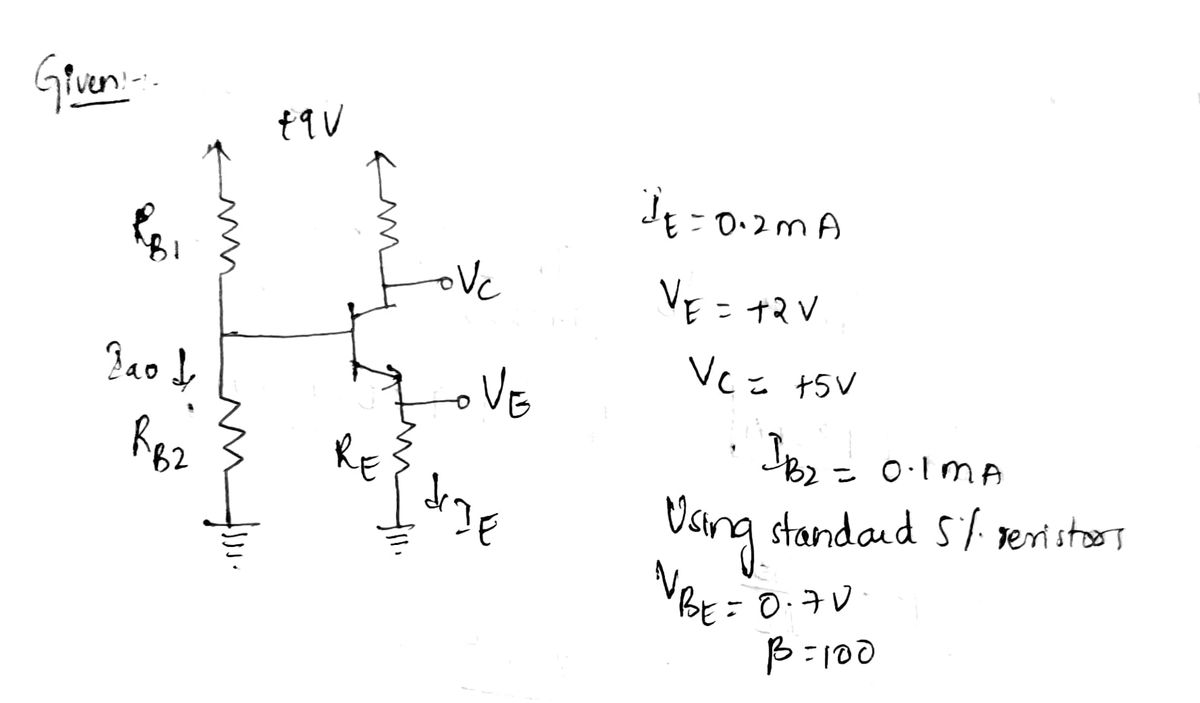 Given:-
+9V
R_B1
V_C
R_B2
V_E
R_E
I_E
I_E = 0.2mA
V_E = +2V
V_C = +5V
I_B2 = 0.1mA
Using standard 5% resistors
V_BE = 0.7V
β=100